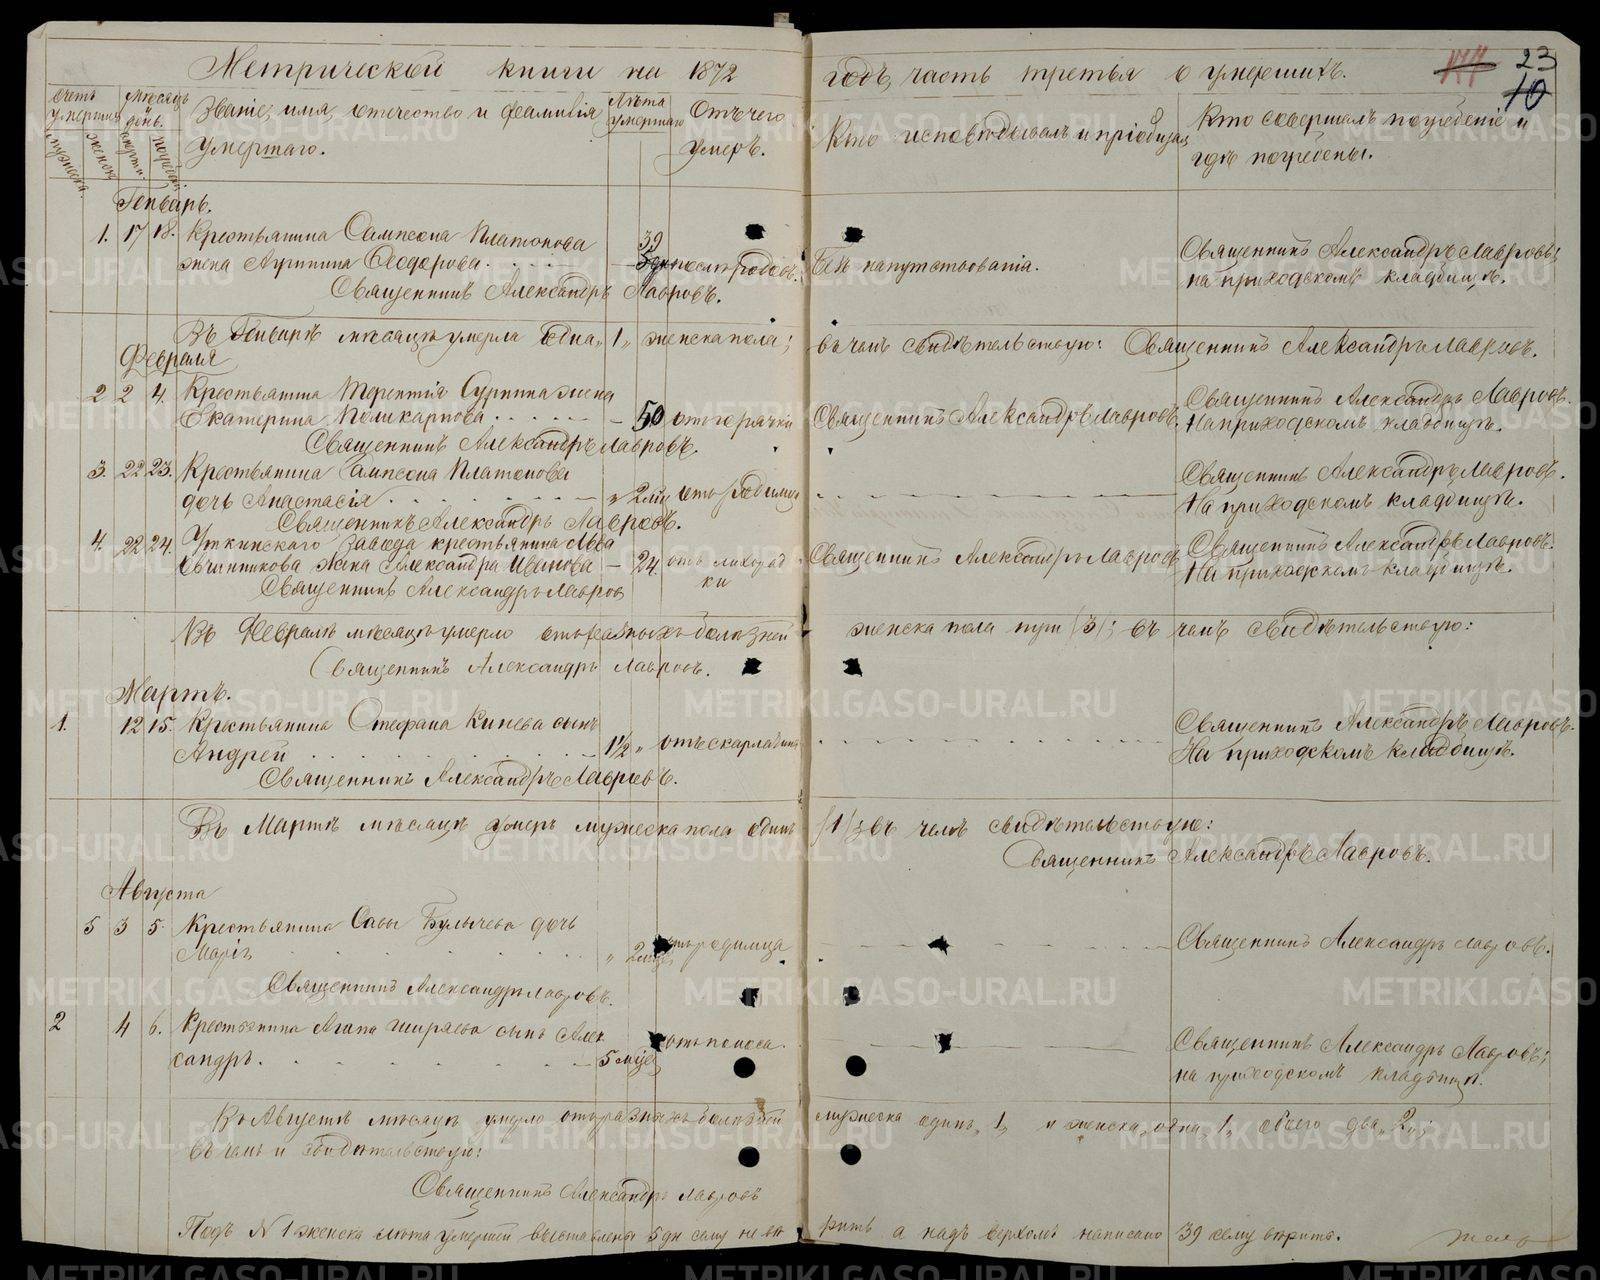 Метрической книги на 1872 годъ, часть третья о умершихъ.
23
10
Счетъ умершихъ
Мѣсяцъ день.
Званіе, имя, отечество и фамилія умершаго.
Лѣта умершаго
Отъ чего умеръ.
Кто исповѣдывалъ и пріобщалъ
Кто совершалъ погребеніе и гдѣ погребены.
мужеска.
женска
смерти.
погребен.
Генварь.
1. 17 18. Крестьянина Сампсона Платонова 39
жена Агрипина Ѳеодорова. послѣ родовъ. Безъ напутствованія. Священникъ Александръ Лавровъ;
на приходскомъ кладбищѣ.
Священникъ Александръ Лавровъ.
Въ Генварѣ мѣсяцѣ умерла одна „1„ женска пола; въ чемъ свидѣтельствую: Священникъ Александръ Лавровъ.
Февраля
2 2 4. Крестьянина Терентія жена Священникъ Александръ Лавровъ.
Екатерина Поликарпова - 50 отъ горячки Священникъ Александръ Лавровъ. На приходскомъ кладбищѣ.
Священникъ Александръ Лавровъ.
3. 22 23. Крестьянина Сампсона Платонова Священникъ Александръ Лавровъ.
дочь Анастасія „ 2 отъ родимца На приходскомъ кладбищѣ.
Священникъ Александръ Лавровъ.
4. 22 24. Уткинскаго завода крестьянина Льва Священникъ Александръ Лавровъ.
Овчинникова жена Александра Иванова - 24. отъ лихорад Священникъ Александръ Лавровъ На приходскомъ кладбищѣ.
ки
Священникъ Александръ Лавровъ
Въ Февралѣ мѣсяцѣ умерло отъ разныхъ болѣзней женска пола три /3/; въ чемъ свидѣтельствую:
Священникъ Александръ Лавровъ.
Мартъ.
1. 12 15. Крестьянина Стефана сынъ Священникъ Александръ Лавровъ.
Андрей 1½ „ отъ скарлатины На приходскомъ кладбищѣ.
Священникъ Александръ Лавровъ.
Въ Мартѣ мѣсяцѣ умеръ мужеска пола одинъ /1/; въ чемъ свидѣтельствую:
Священникъ Александръ Лавровъ.
Августа
5 3 5. Крестьянина Савы Булычева дочь
Марія „ 2 отъ родимца Священникъ Александръ Лавровъ.
Священникъ Александръ Лавровъ.
2 4 6. Крестьянина Агапа Ширяева сынъ Алек
сандръ. - 5 отъ поноса. Священникъ Александръ Лавровъ;
на приходскомъ кладбищѣ.
Въ Августѣ мѣсяцѣ умерло отъ разныхъ болѣзней мужеска одинъ „1„ и женска, одна „1„ обоего два „2„;
въ чемъ и свидѣтельствую:
Священникъ Александръ Лавровъ
Подъ N 1 женска лѣта умершей выставлены 5 дн сему не вѣрить а надъ верхомъ написано 39 сему вѣрить.
METRIKI.GASO-URAL.RU